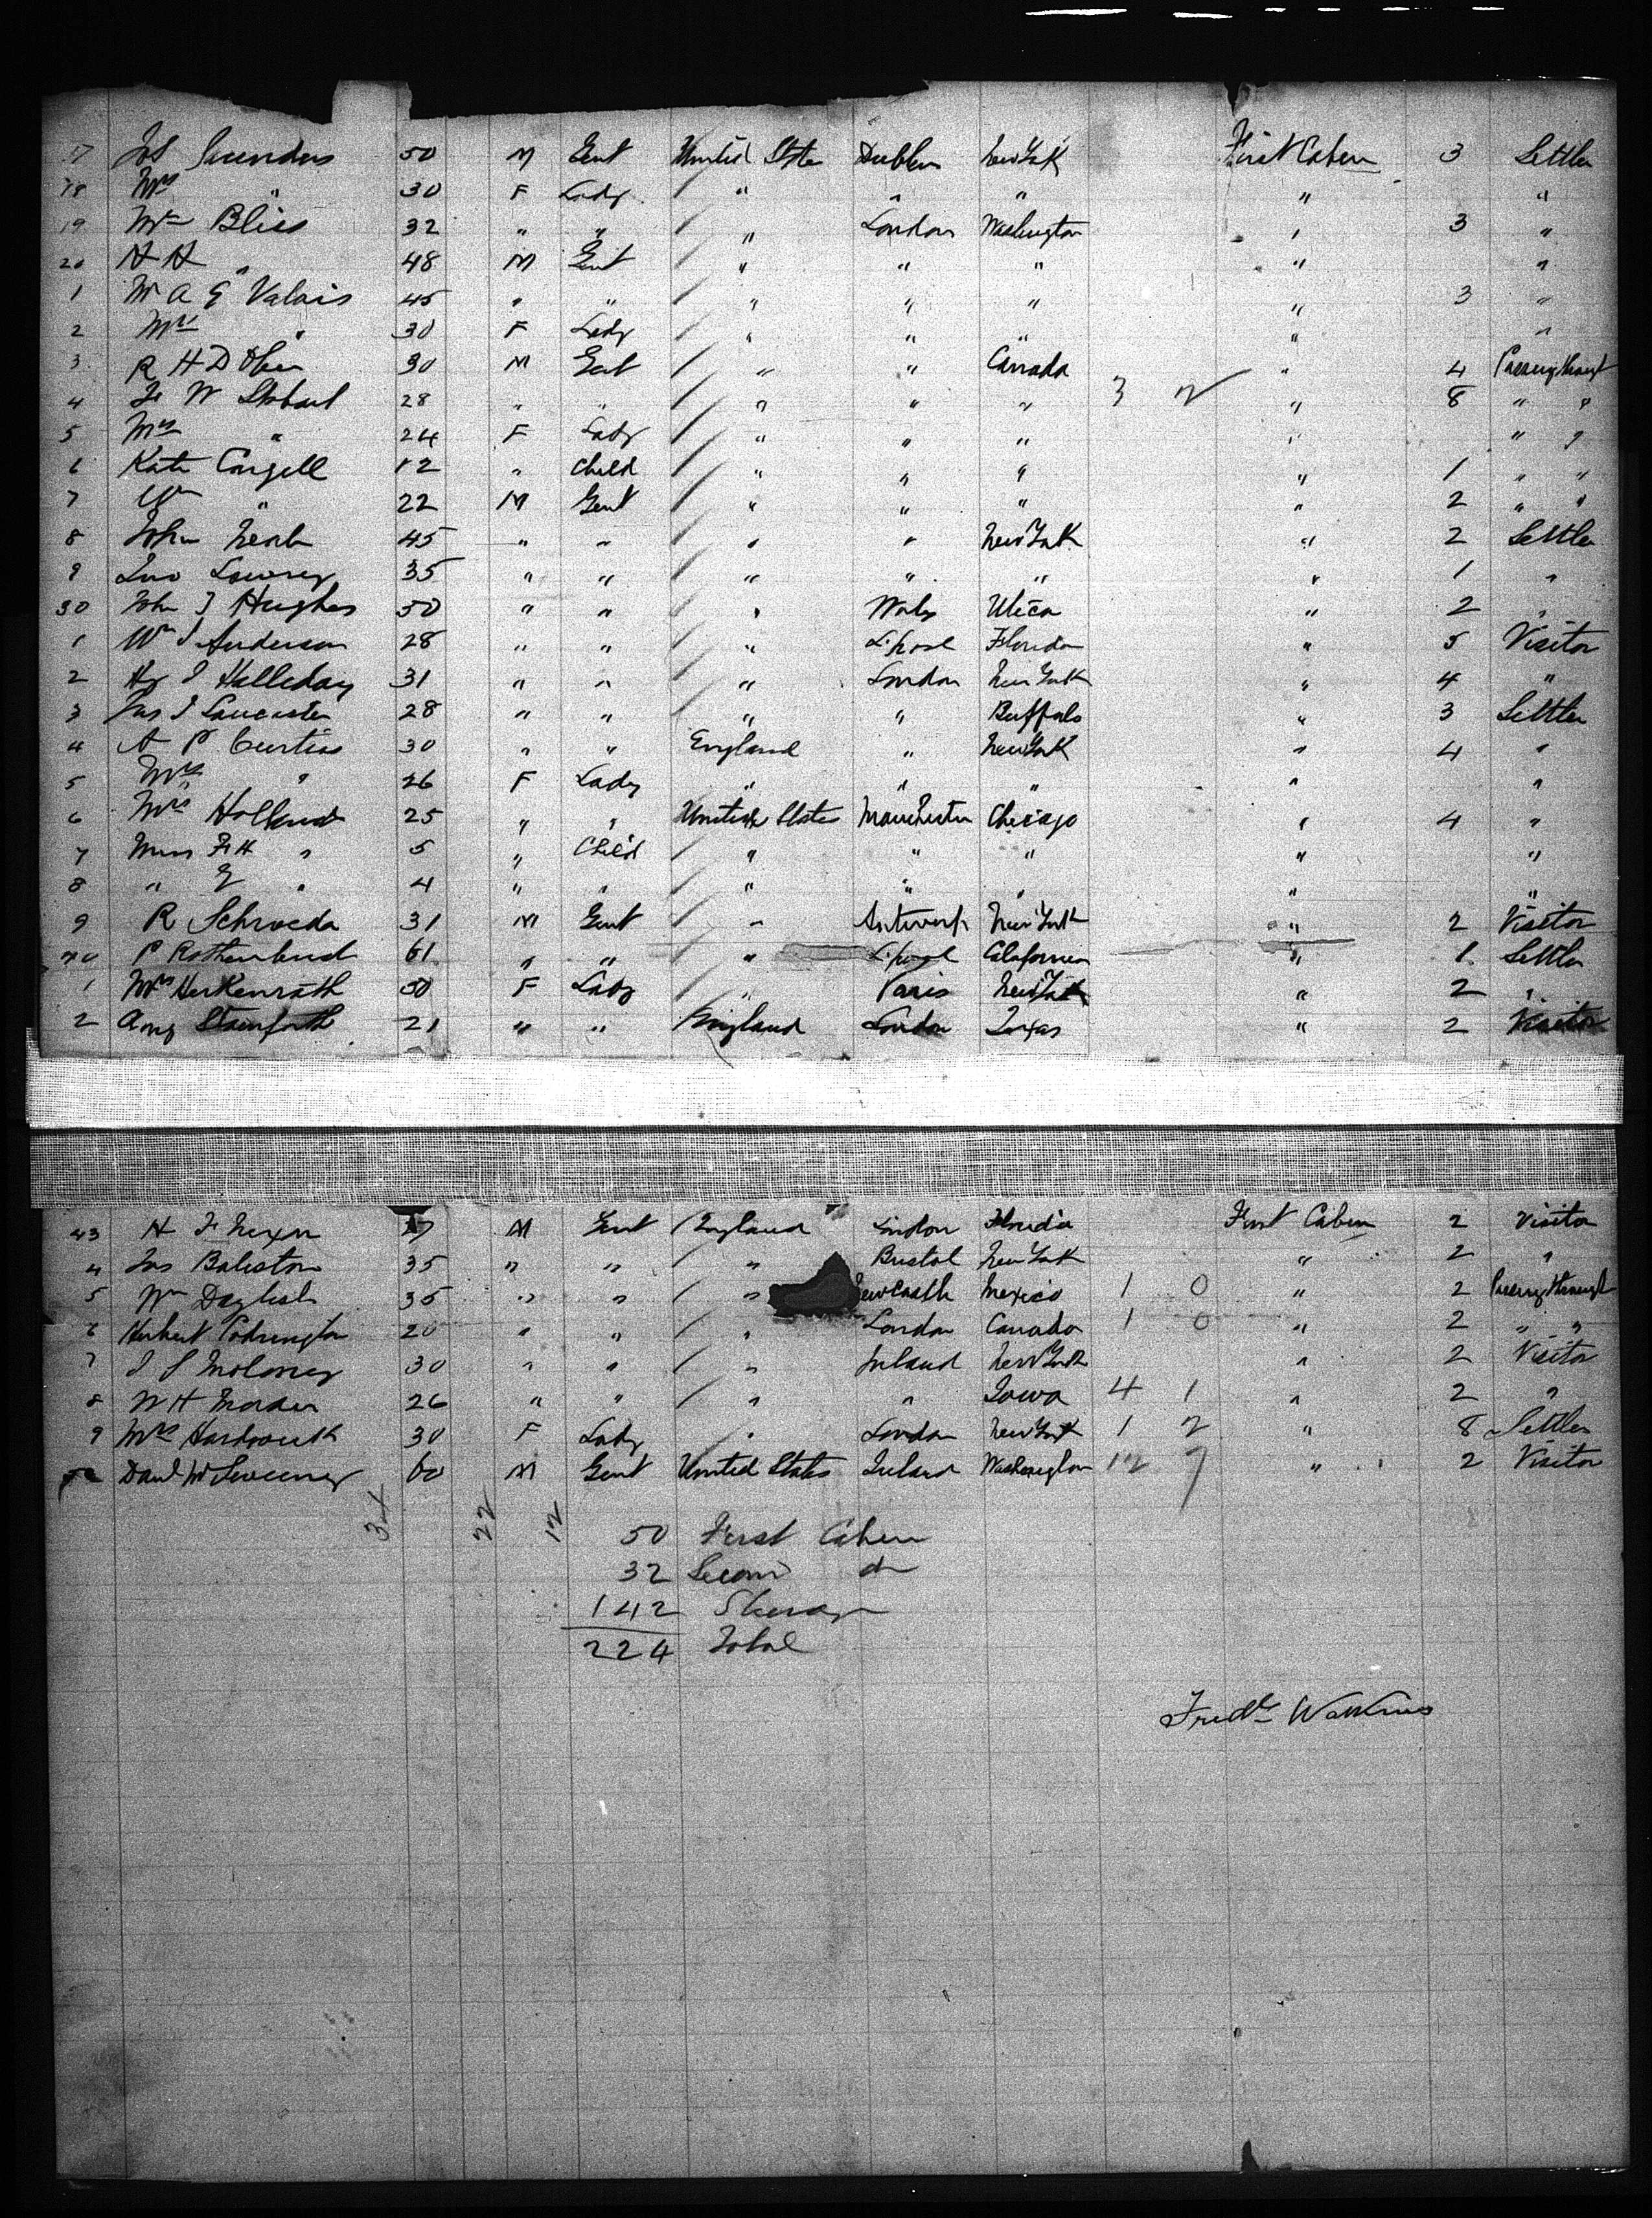 17 Jos Saunders 50 M Gent United States Dublin New York First Cabin 3 Settler
18 Mrs " 30 F Lady " " " " "
19 Mrs Bliss 32 " " " London Washington " 3 "
20 H H " 48 M Gent " " " " "
1 Mr A E Valois 45 " " " " " " 3 "
2 Mrs " 30 F Lady " " " " "
3 R H D 30 M Gent " " Canada " 4 Passing through
4 F W Stobart 28 " " " " " 3 2 " 8 " "
5 Mrs " 24 F Lady " " " " " "
6 Kate Cargill 12 " Child " " " " 1 " "
7 Wm " 22 M Gent " " " " 2 " "
8 John 45 " " " " New York " 2 Settler
9 Lowrey 35 " " " " " " 1 "
30 John J Hughes 50 " " " Wales Utica " 2 "
1 Wm J Anderson 28 " " " L'pool Florida " 5 Visitor
2 Hy J Halliday 31 " " " London New York " 4 "
3 Jas J Lancaster 28 " " " " Buffalo " 3 Settler
4 A P Curtiss 30 " " England " New York " 4 "
5 Mrs " 26 F Lady " " " " "
6 Mrs Holland 25 " " United States Manchester Chicago " 4 "
7 Miss F H " 5 " Child " " " " "
8 " E " 4 " " " " " " "
9 R Schroeder 31 M Gent " Antwerp New York " 2 Visitor
40 P 61 " " " L'pool California " 1 Settler
1 Mrs Herkenrath 50 F Lady " Paris New York " 2 "
2 Amy Stainforth 21 " " England London Texas " 2 Visitor
43 H F Nixon M Gent England London Florida First Cabin 2 Visitor
4 Jas Balistow 35 " " " Bristol New York " 2 "
5 Wm Daglish 35 " " " Newcastle Mexico 1 0 " 2 Passing through
6 Herbert Codrington 20 " " " London Canada 1 0 " 2 " "
7 J S Moloney 30 " " " Ireland New York " 2 Visitor
8 W H 26 " " " " Iowa 4 1 " 2 "
9 Mrs 30 F Lady " London New York 1 2 " 8 Settler
50 Danl McSweeney 60 M Gent United States Ireland Washington 12 7 " 2 Visitor
34 22 12
50 First Cabin
32 Second do
142 Steerage
224 Total
Fredk Watkins